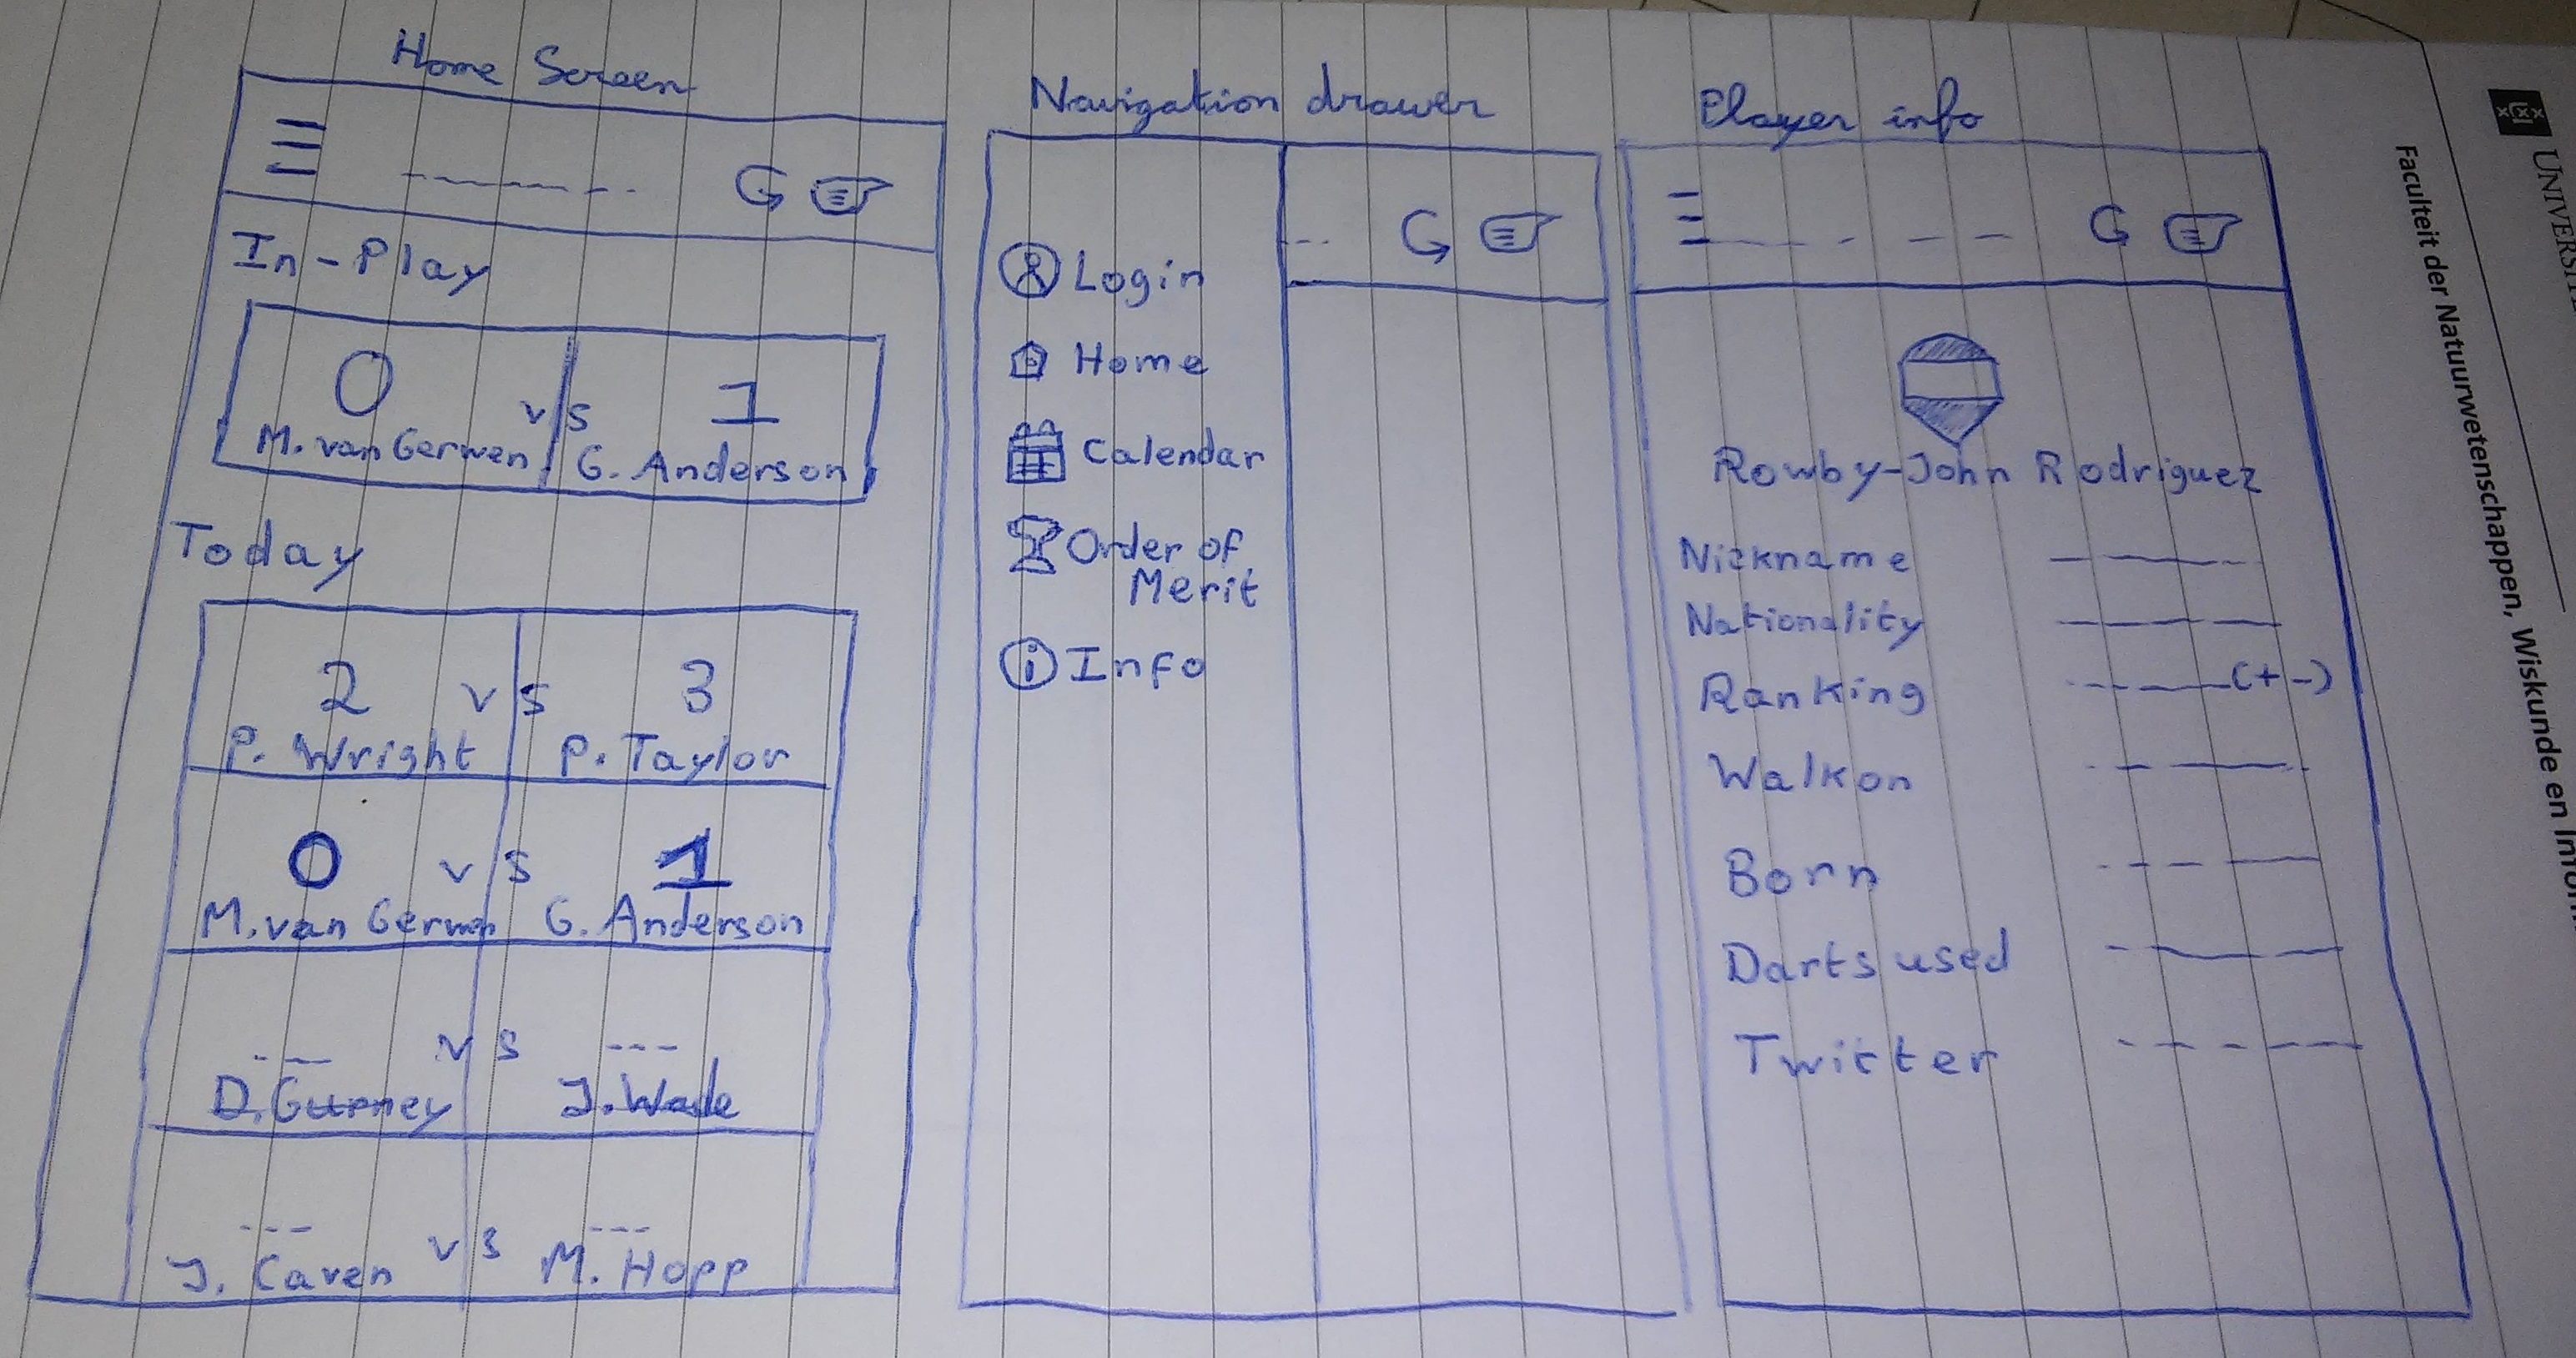 Home Screen
In-Play
0 vs 1
M. van Gerwen G. Anderson
Today
2 vs 3
P. Wright P. Taylor
0 vs 1
M. van Gerwen G. Anderson
--- vs ---
D. Gurney J. Wade
--- vs ---
J. Caven M. Hopp
Navigation drawer
Login
Home
Calendar
Order of
Merit
Info
Player info
Rowby-John Rodriguez
Nickname
Nationality
Ranking (+-)
Walkon
Born
Darts used
Twitter
Faculteit der Natuurwetenschappen, Wiskunde en